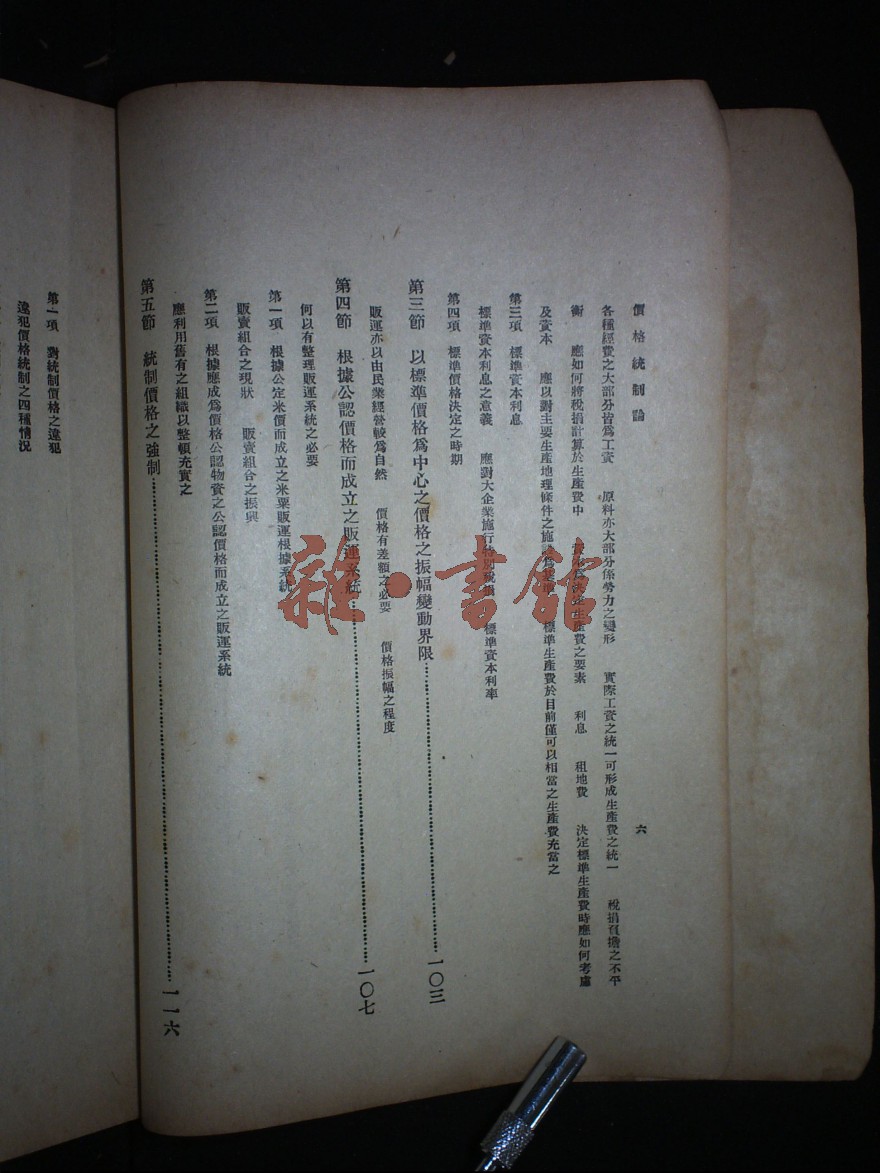 價格統制論
六
各種經費之大部分皆爲工資 原料亦大部分係勞力之變形 實際工資之統一可形成生產費之統一 稅捐負擔之不平
衡 應如何將稅捐計算於生產費中 決定生產費之要素 利息 租地費 決定標準生產費時應如何考慮
及資本 應以對主要生產地理條件之施 標準生產費於目前僅可以相當之生產費充當之
第三項 標準資本利息
標準資本利息之意義 應對大企業施行特別稅捐 標準資本利率
第四項 標準價格決定之時期
第三節 以標準價格爲中心之價格之振幅變動界限 一〇三
販運亦以由民業經營較爲自然 價格有差額之必要 價格振幅之程度
第四節 根據公認價格而成立之販運系統 一〇七
何以有整理販運系統之必要
第一項 根據公定米價而成立之米粟販運根據系統
販賣組合之現狀 販賣組合之振興
第二項 根據應成爲價格公認物資之公認價格而成立之販運系統
應利用舊有之組織以整頓充實之
第五節 統制價格之強制 一一六
第一項 對統制價格之違犯
違犯價格統制之四種情況
雜·書館